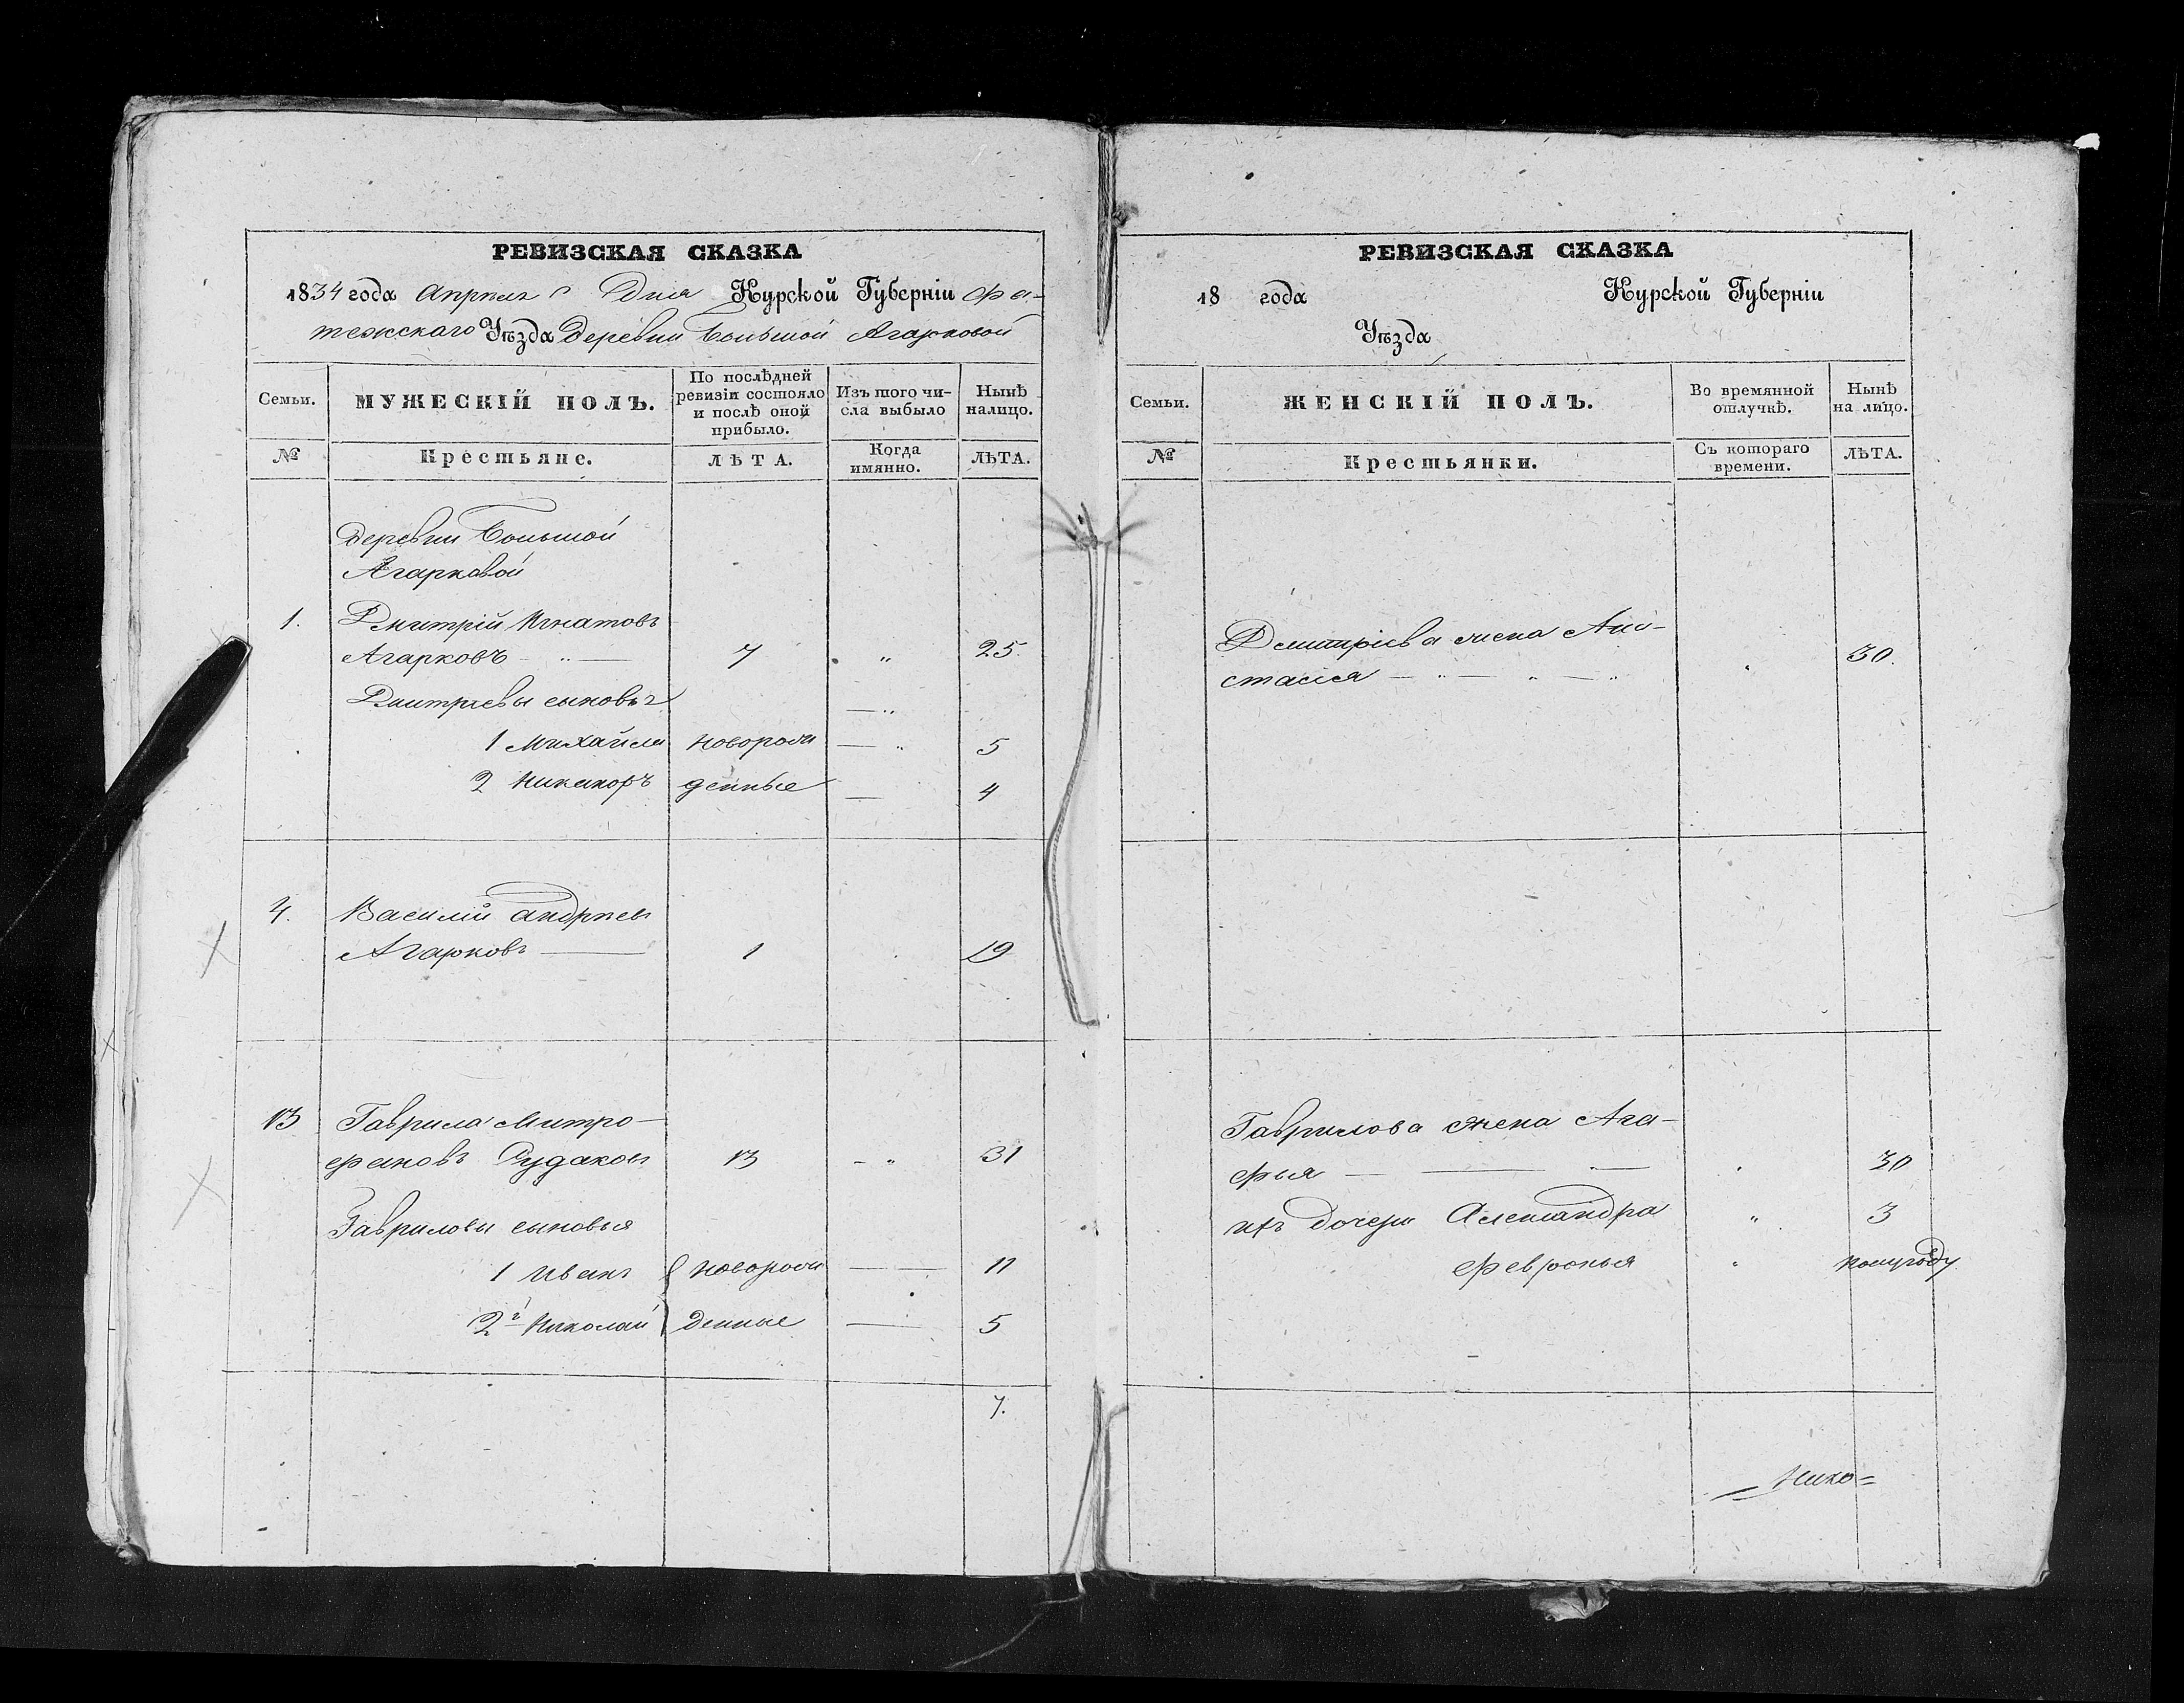 РЕВИЗСКАЯ СКАЗКА
1834 года Апреля Дня Курской Губерніи Фа-
тежскаго Уѣзда Деревни Большой Агарковой
Семьи. МУЖЕСКІЙ ПОЛЪ. По послѣдней ревизіи состояло и послѣ оной прибыло. Изъ того чи- сла выбыло Нынѣ налицо.
№ Крестьяне. ЛѢТА. Когда имянно. ЛѢТА.
Деревни Большой
Агарковой
1. Дмитрій Игнатовъ
Агарковъ — „ — 7 „ 25
Дмитріевы сыновья — „
1 Михайла новорож — „ 5
2 Никаноръ денные — 4
4. Василій Андреевъ
Агарковъ — 1 19
13 Гаврила Митро-
фановъ Судаковъ 13 - „ 31
Гавриловы сыновья
1 Иванъ новорож — 11
2й Николай денные — 5
7.
РЕВИЗСКАЯ СКАЗКА
18 года Курской Губерніи
Уѣзда
Семьи. ЖЕНСКІЙ ПОЛЪ. Во времянной отлучкѣ. Нынѣ на лицо.
№ Крестьянки. Съ котораго времени. ЛѢТА.
Дмитріева жена Ана-
стасия — „ — „ — „ 30.
Гаврилова жена Ага-
фья — — „ — 30
ихъ дочери Александра „ 3
Февронья „ полугоду